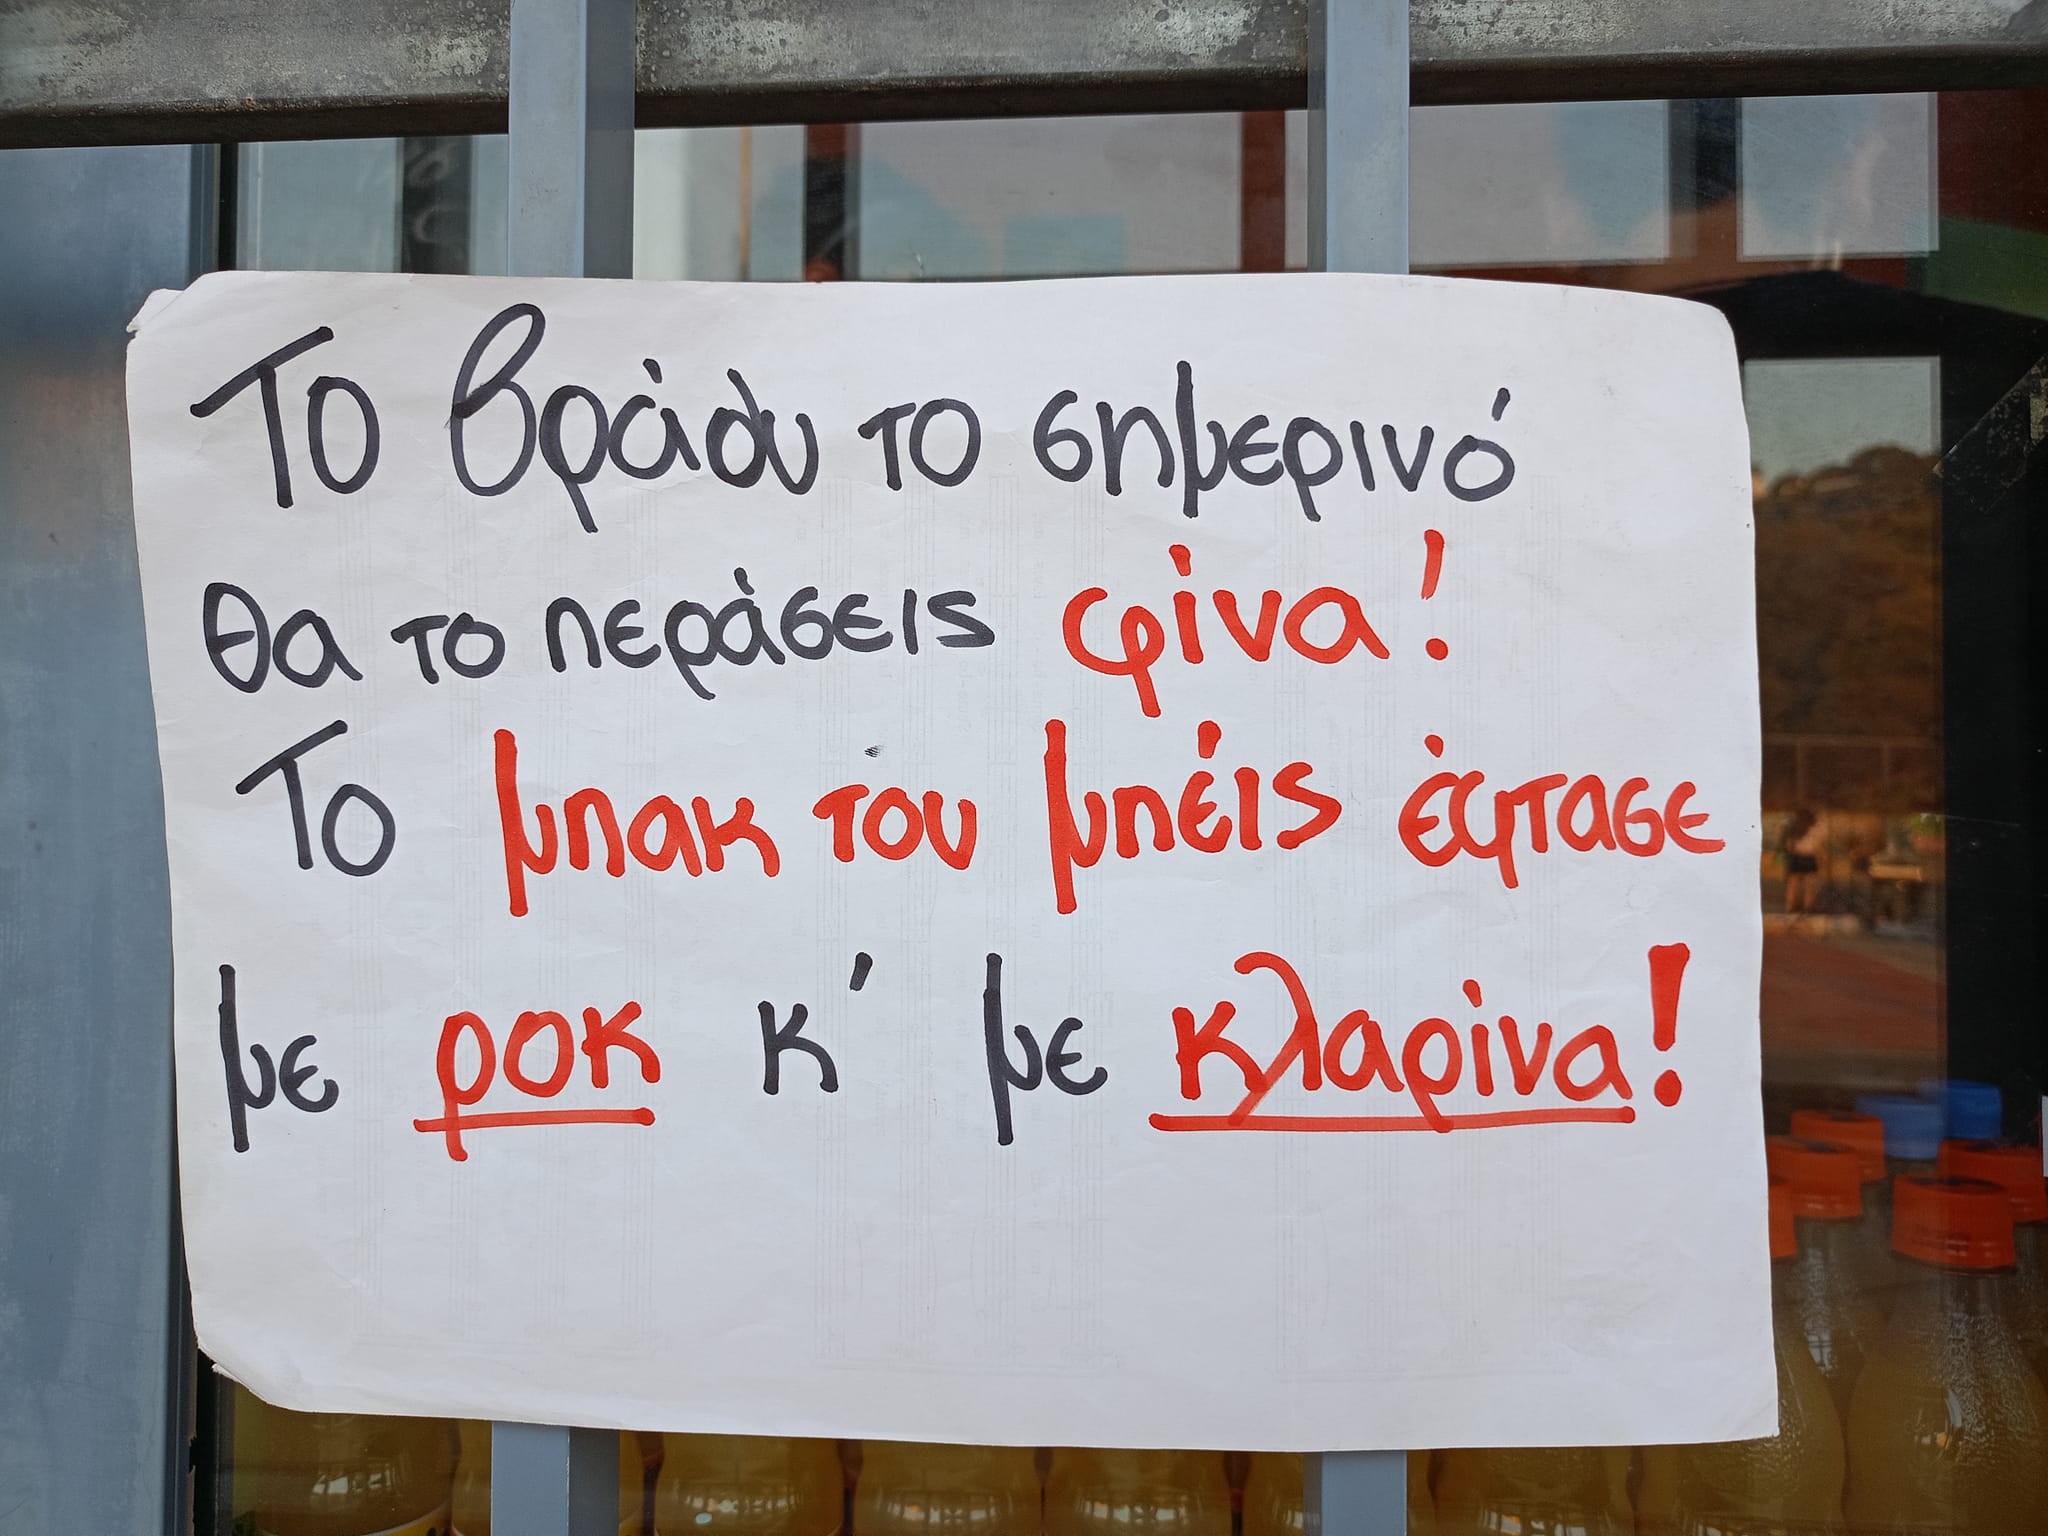 Το βράδυ το σημερινό
θα το περάσεις φίνα!
Το μπακ του μπέις έφτασε
με ροκ κ' με κλαρίνα!